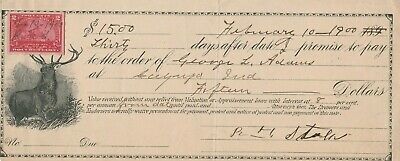 $15.00 February 10 - 1900
Thirty days after date I promise to pay
to the order of George L. Adams
at Cayuga Ind
Fifteen Dollars
Value received, without any relief from Valuation or Appraisement laws with interest at 8 per cent.
per annum from date until paid and Attorney's fees. The Drawers and
Endorsers severally waive presentment for payment, protest and notice of protest and non payment of this note.
No Due